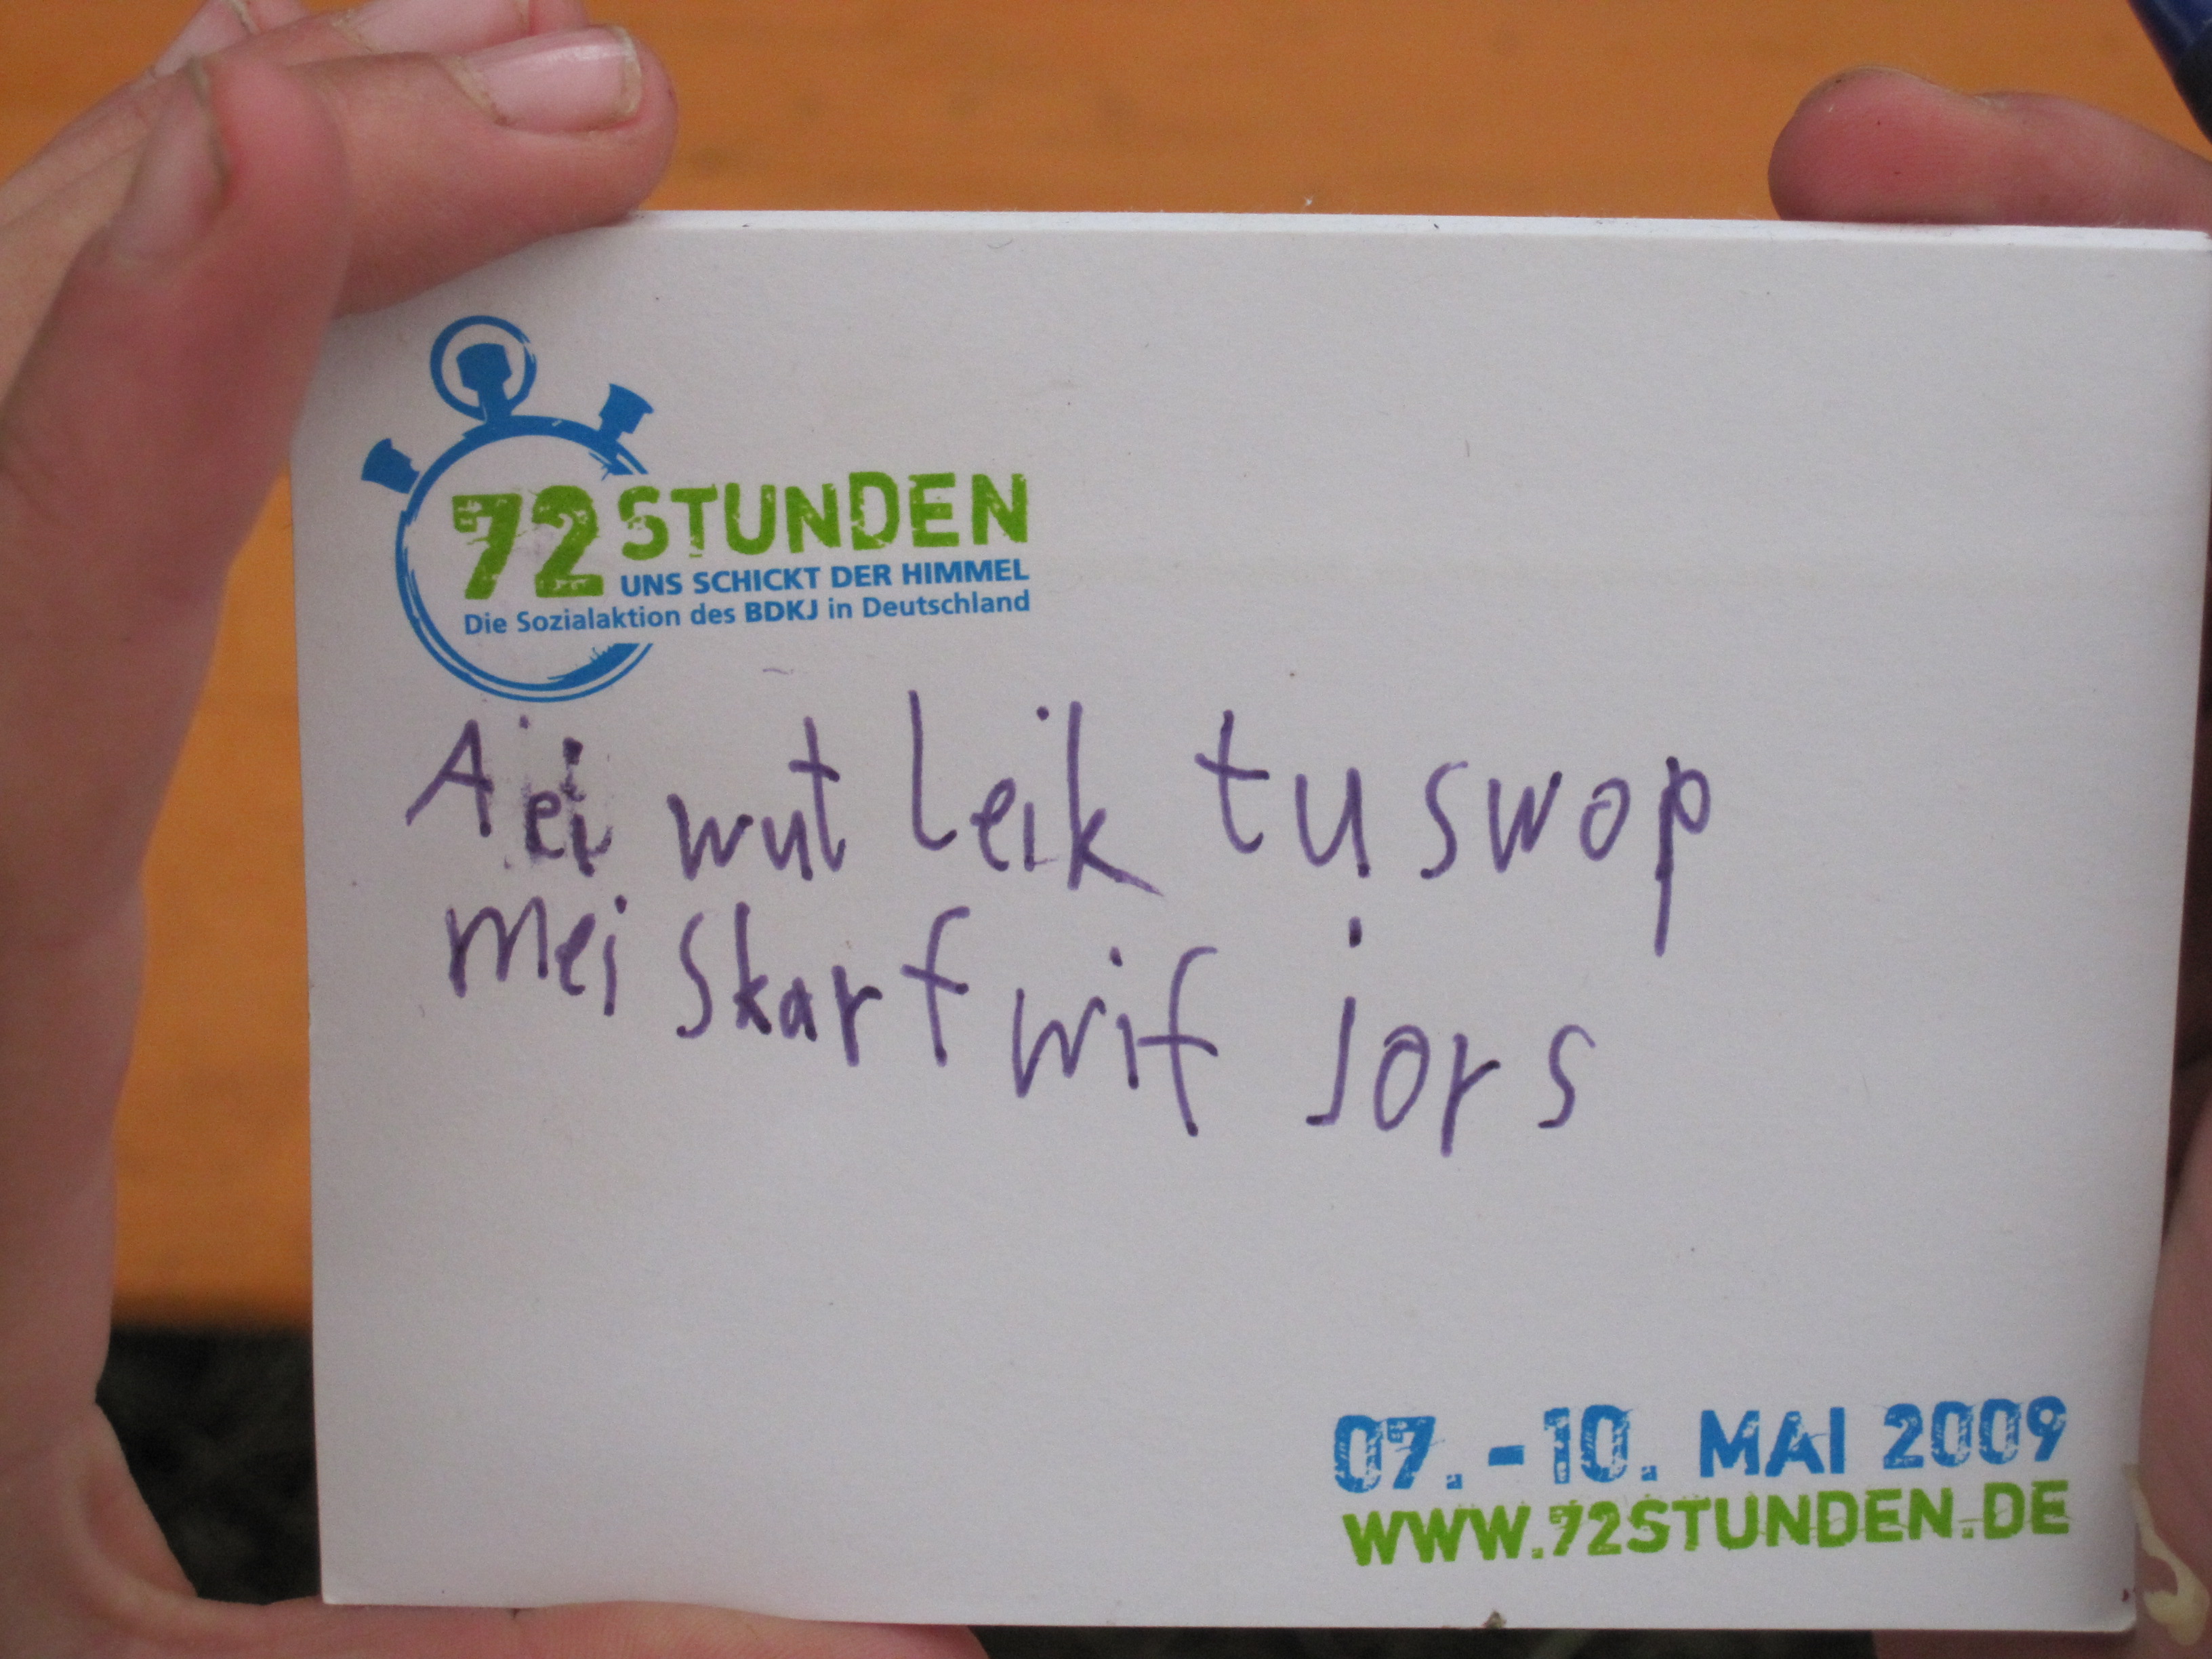 72 STUNDEN
UNS SCHICKT DER HIMMEL
Die Sozialaktion des BDKJ in Deutschland
Aei wut leik tu swop
mei skarf wif jors
07. - 10. MAI 2009
WWW.72STUNDEN.DE